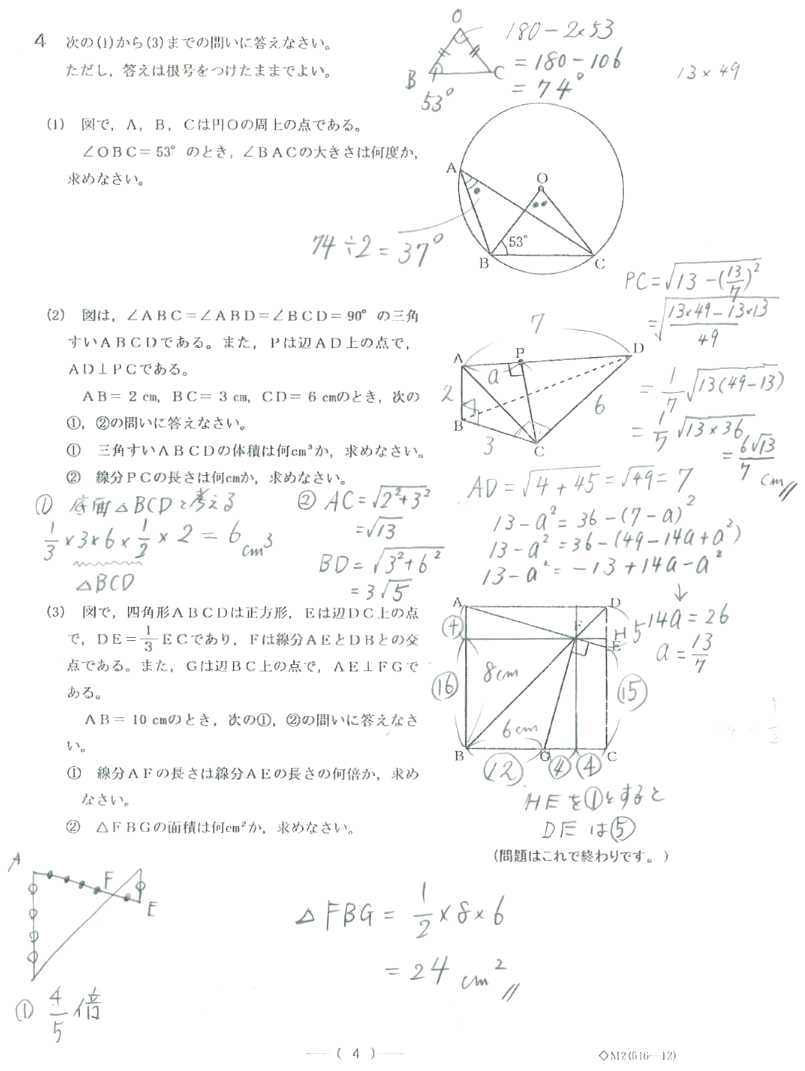 4 次の(1)から(3)までの問いに答えなさい。
ただし，答えは根号をつけたままでよい。
O
B
C
53°
180-2×53
=180-106
=74°
13×49
(1) 図で，A，B，Cは円Oの周上の点である。
∠OBC＝53° のとき，∠BACの大きさは何度か，
求めなさい。
A
O
53°
B
C
74÷2=37°
(2) 図は，∠ABC＝∠ABD＝∠BCD＝90° の三角
すいABCDである。また，Pは辺AD上の点で，
AD⊥PCである。
AB＝2cm，BC＝3cm，CD＝6cmのとき，次の
①，②の問いに答えなさい。
① 三角すいABCDの体積は何cm³か，求めなさい。
② 線分PCの長さは何cmか，求めなさい。
7
A
P
D
a
2
B
3
C
6
PC=√13-(13/7)²
=√13×49-13×13/49
=1/7√13(49-13)
=1/5√13×36
=6√13/7 cm
① 底面△BCDと考える
1/3×3×6×1/2×2=6cm³
△BCD
② AC=√2²+3²
=√13
BD=√3²+6²
=3√5
AD=√4+45=√49=7
13-a²=36-(7-a)²
13-a²=36-(49-14a+a²)
13-a²=-13+14a-a²
↓
14a=26
a=13/7
(3) 図で，四角形ABCDは正方形，Eは辺DC上の点
で，DE＝1/3ECであり，Fは線分AEとDBとの交
点である。また，Gは辺BC上の点で，AE⊥FGで
ある。
AB＝10cmのとき，次の①，②の問いに答えなさ
い。
① 線分AFの長さは線分AEの長さの何倍か，求め
なさい。
② △FBGの面積は何cm²か，求めなさい。
A
D
④
F
H
5
E
8cm
⑯
⑮
6cm
B
G
C
⑫
④
④
HEを①とすると
DEは⑤
(問題はこれで終わりです。)
A
F
E
① 4/5倍
△FBG=1/2×8×6
=24cm²
(4)
◇M2(616—12)